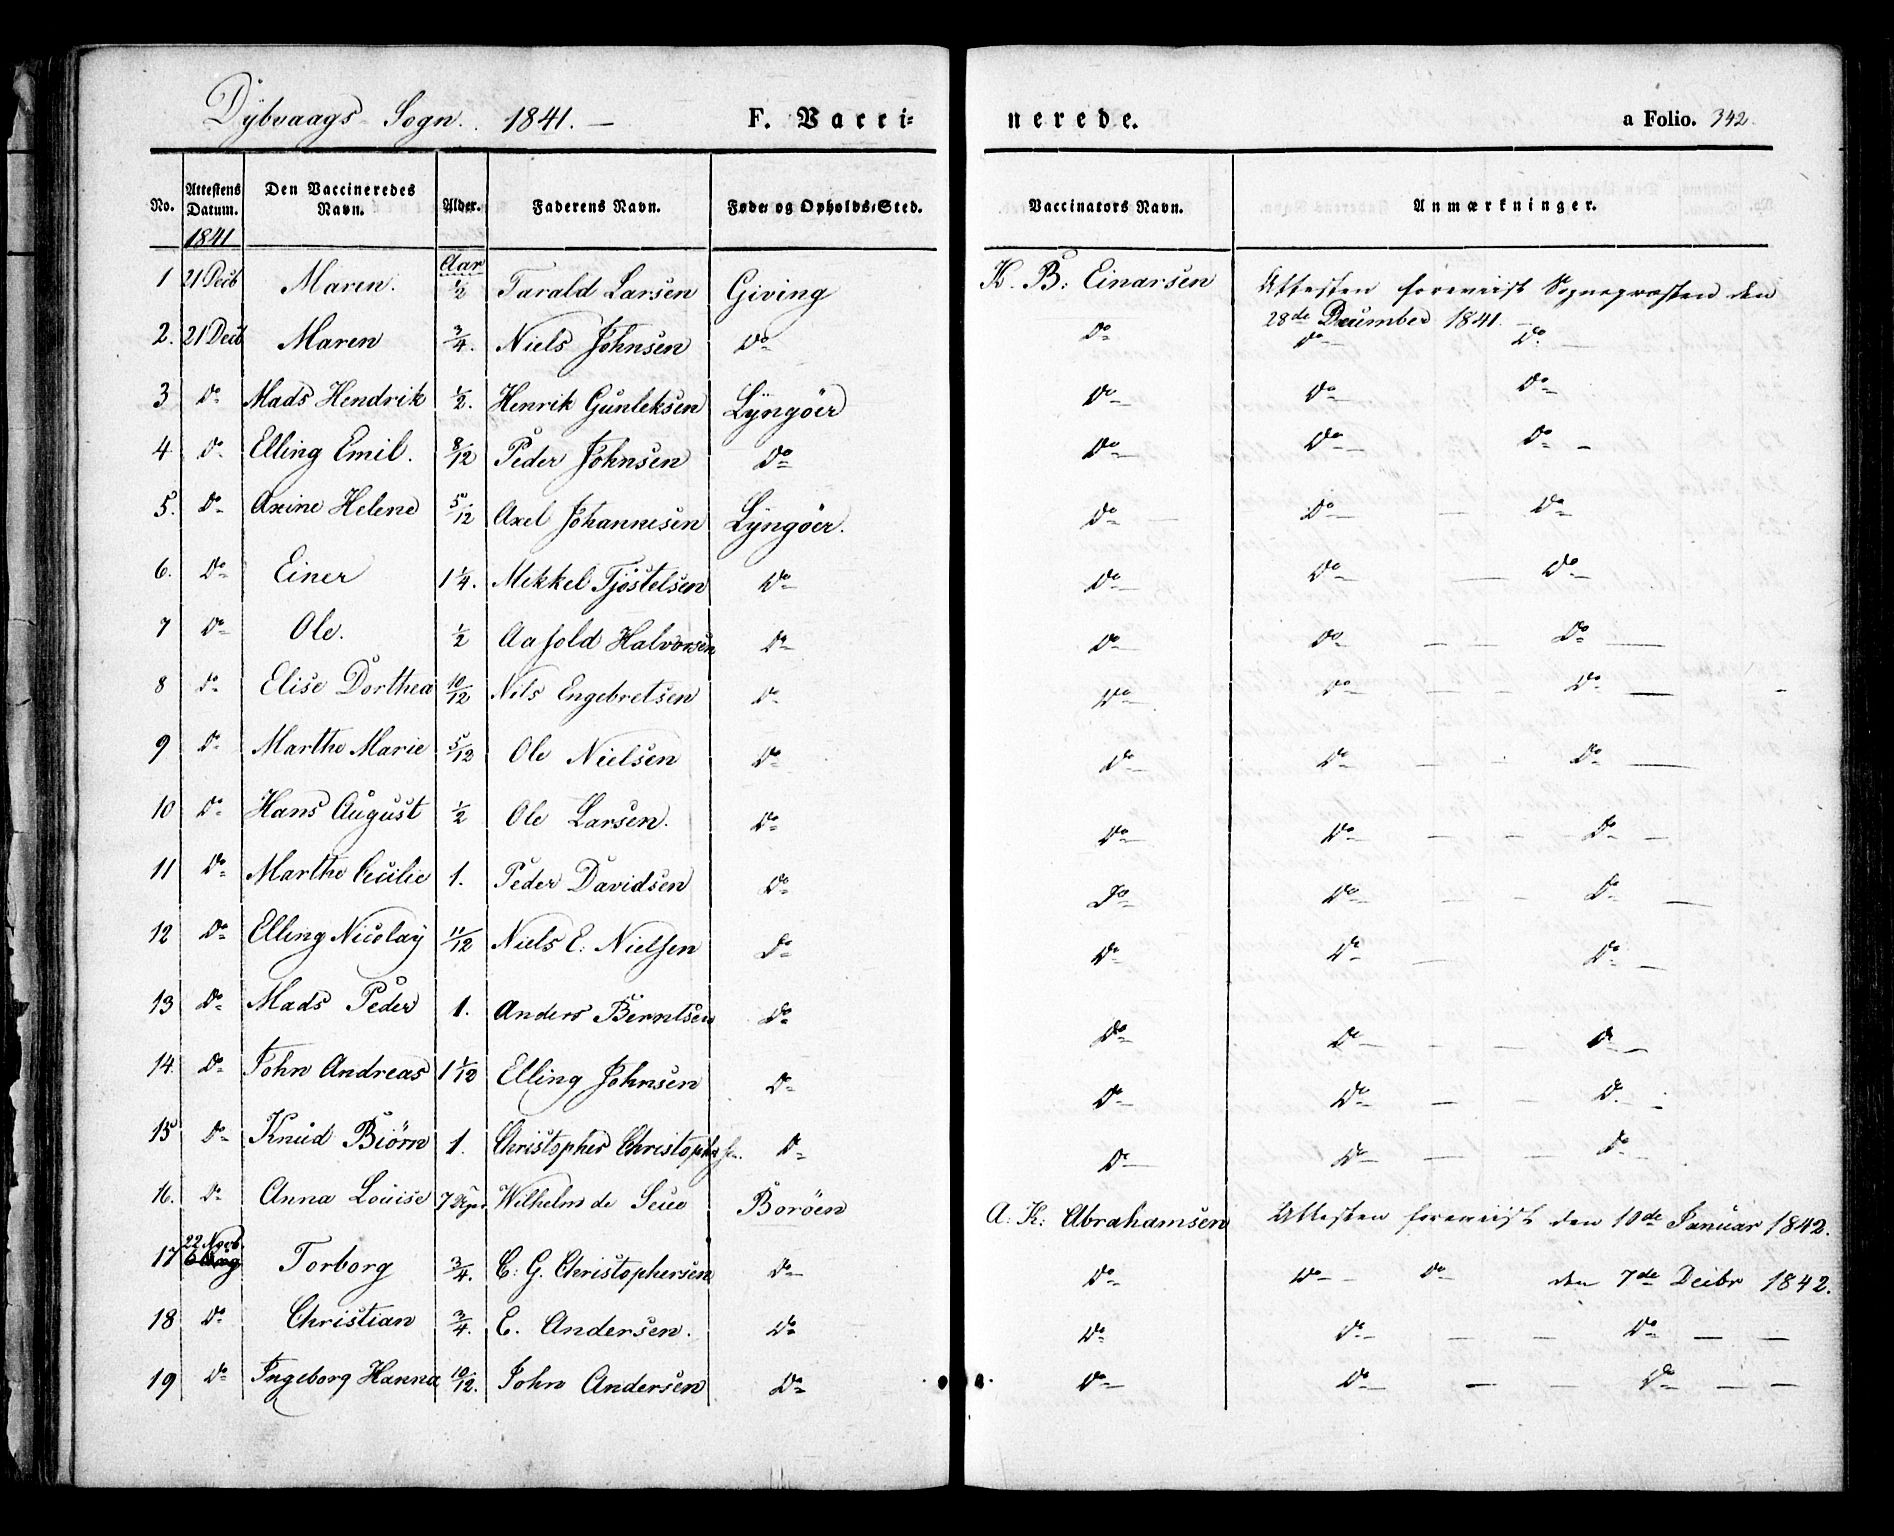 Dybvaags Sogn. 1841. — F. Vacci= nerede. a Folio. 342.
No. Attestens Datum. Den Vaccineredes Navn. Alder. Faderens Navn. Føde= og Opholds=Sted. Vaccinators Navn. Anmærkninger.
1841 Aar
1 21 Decb Maren. 1/2 Tarald Larsen Giving K. B: Einarsen Attesten foreviist Sognepræsten den
28de December 1841.
2. 21 Decb Maren 3/4. Niels Johnsen Do Do Do Do
3 Do Mads Hendrik 1/2. Henrik Gunleksen Lyngöer Do Do Do
4 Do Elling Emil. 8/12 Peder Johnsen Do Do Do Do
5. Do Axine Helene 5/12 Axel Johannesen Lyngöer. Do Do Do
6. Do Einer 1 1/4. Mekkel Tjöstelsen Do Do Do Do
7 Do Ole. 1/2 Aasold Halvorsen Do Do Do Do
8 Do Elise Dorthea 10/12 Nils Engebretsen Do Do Do Do
9 Do Marthe Marie 5/12 Ole Nielsen Do Do Do Do
10 Do Hans August 1/2 Ole Larsen. Do Do Do Do
11 Do Marthe Cecilie 1. Peder Davidsen Do Do Do Do
12 Do Elling Nicolay 11/12 Niels E: Nielsen Do Do Do Do
13 Do Mads Peder 1. Anders Berntsen Do Do Do Do
14. Do John Andreas 1 1/12 Elling Johnsen Do Do Do Do
15 Do Knud Biörn 1. Christopher Christophersen Do Do Do Do
16. Do Anna Louise 7 Wilhelm de Seue Boröen A: K: Abrahamsen Attesten foreviist den 10de Januar 1842.
17 22 Novb. Torborg 3/4. C: G. Christophersen Do Do Do Do den 7de Decbr 1842.
18 Do Christian 3/4. E. Andersen. Do Do Do Do
19 Do Ingeborg Hanna 10/12. John Andersen Do Do Do Do